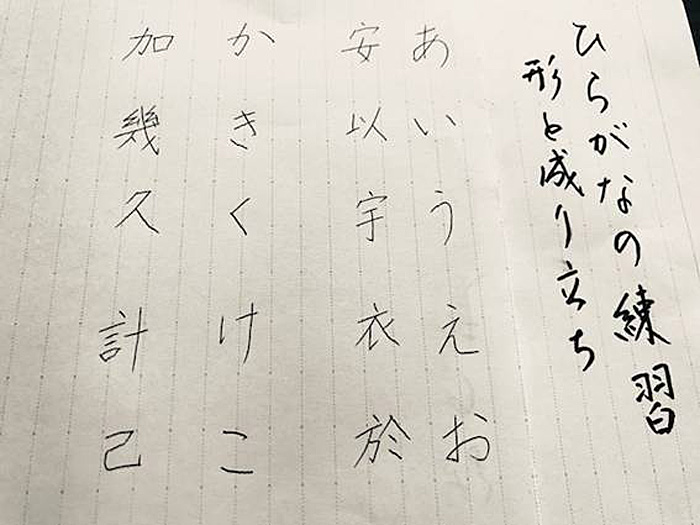 ひらがなの練習
形と成り立ち
あいうえお
安以宇衣於
かきくけこ
加幾久計己